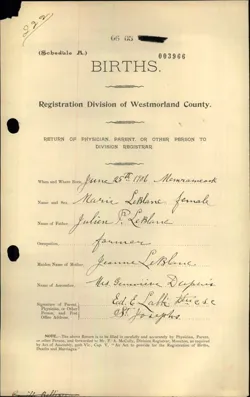 66 G5
(Schedule A.)
003966
BIRTHS.
Registration Division of Westmorland County.
RETURN OF PHYSICIAN, PARENT, OR OTHER PERSON TO
DIVISION REGISTRAR.
When and Where Born, June 25th 1906
Name and Sex, Marie LeBlanc female
Name of Father, Julien P. LeBlanc
Occupation, farmer
Maiden Name of Mother, Jeanne LeBlanc
Name of Accoucheur, Mrs Genevieve Dupuis
Signature of Parent,
Physician, or Other
Person, and Post
Office Address.
Ed. E.
St. Josephs
NOTE.—The above Return is to be filled in carefully and accurately by Physician, Parent,
or other Person, and forwarded to Division Registrar, Moncton, as required
by Act of Assembly, Cap. V, "An Act to provide for the Registration of Births,
Deaths and Marriages."